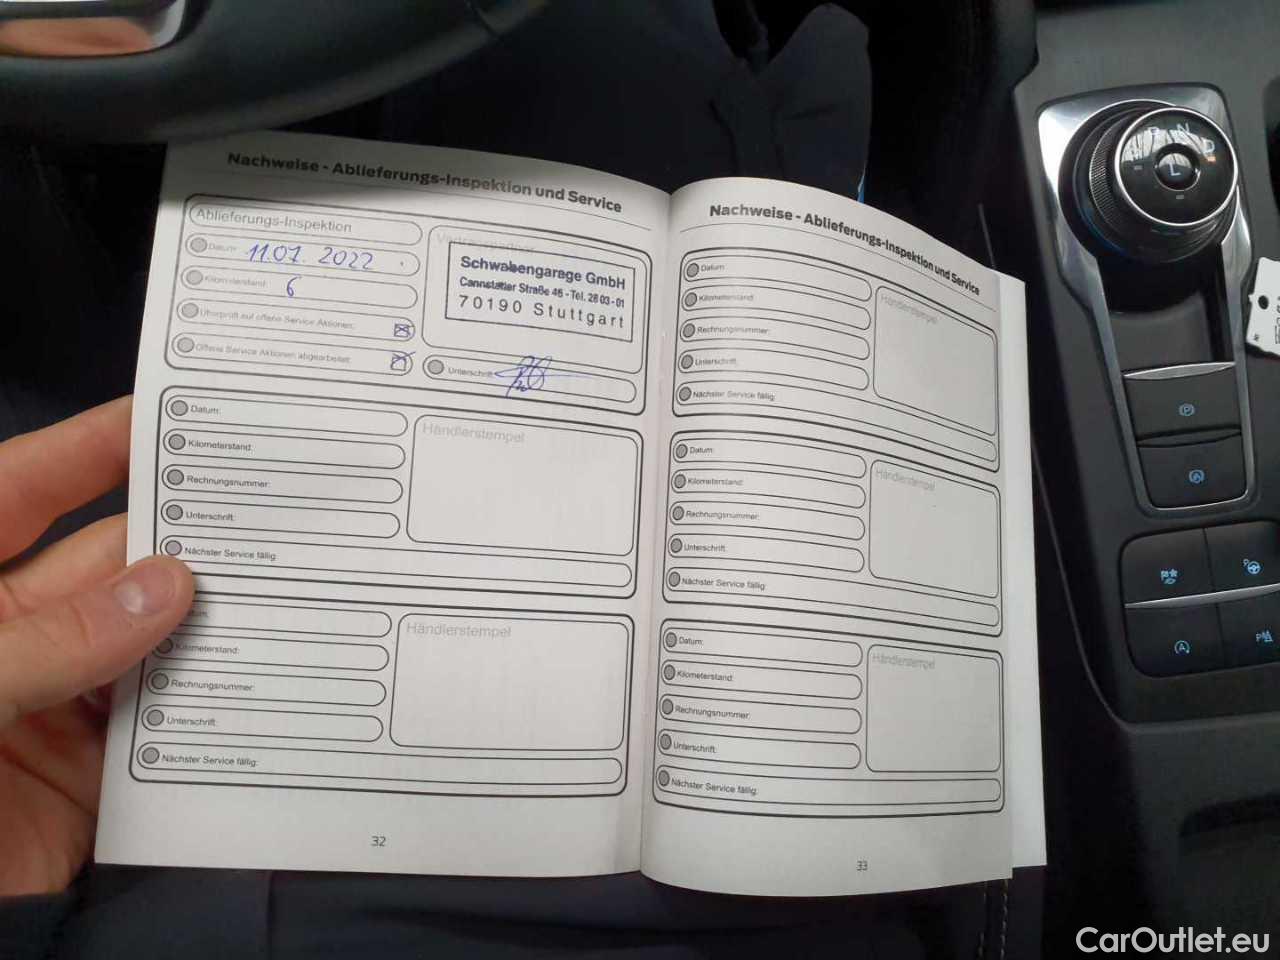 Nachweise - Ablieferungs-Inspektion und Service
Ablieferungs-Inspektion
Datum: 11.07.2022
Kilometerstand: 6
Überprüft auf offene Service Aktionen:
Offene Service Aktionen abgearbeitet:
Vertragspartner
Schwabengarage GmbH
Cannstatter Straße 46 - Tel. 28 03-01
70190 Stuttgart
Unterschrift:
Datum:
Kilometerstand:
Rechnungsnummer:
Unterschrift:
Nächster Service fällig:
Händlerstempel
Datum:
Kilometerstand:
Rechnungsnummer:
Unterschrift:
Nächster Service fällig:
Händlerstempel
32
Nachweise - Ablieferungs-Inspektion und Service
Datum:
Kilometerstand:
Rechnungsnummer:
Unterschrift:
Nächster Service fällig:
Händlerstempel
Datum:
Kilometerstand:
Rechnungsnummer:
Unterschrift:
Nächster Service fällig:
Händlerstempel
Datum:
Kilometerstand:
Rechnungsnummer:
Unterschrift:
Nächster Service fällig:
Händlerstempel
33
R N D
L
CarOutlet.eu